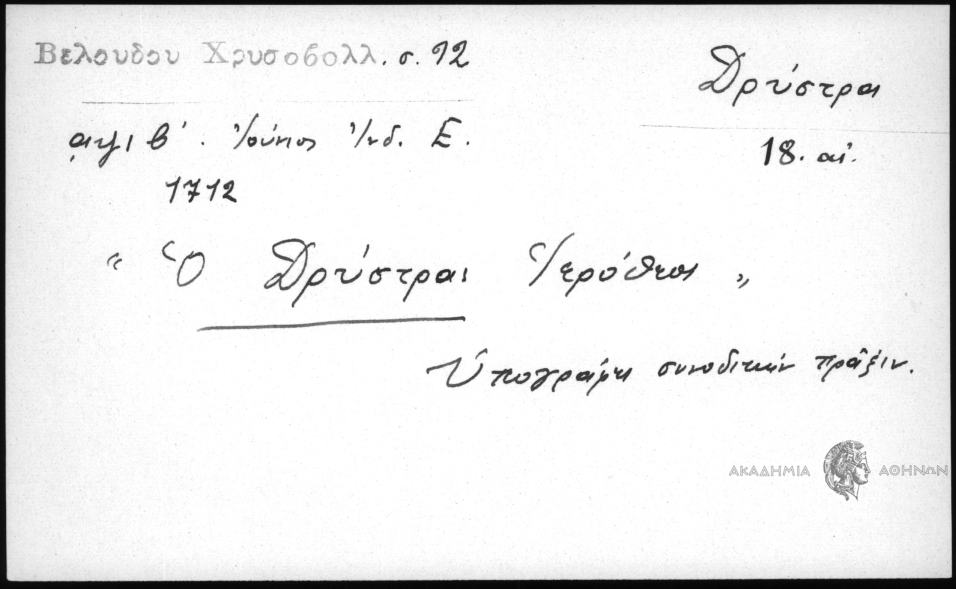 Βελουδου Χρυσοβολλ. σ. 92
Δρύστραι
͵αψιβ΄. Ἰούνιος Ἰνδ. Ε.
18. αἰ.
1712
“ Ὁ Δρύστραι Ἱερόθεος „
Ὑπογράφει συνοδικὴν πρᾶξιν.
ΑΚΑΔΗΜΙΑ ΑΘΗΝΩΝ